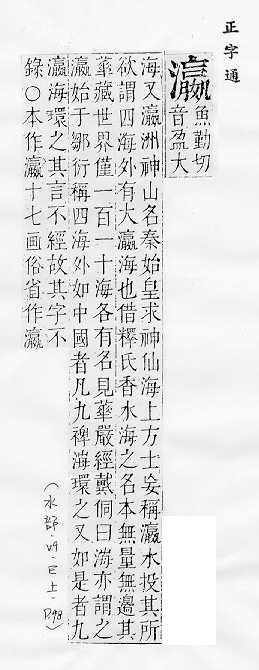 正字通
瀛
魚勤切
音盈大
海又瀛洲神山名秦始皇求神仙海上方士妄稱瀛水投其所
欲謂四海外有大瀛海也借釋氏香水海之名本無量無邊其
華藏世界僅一百一十海各有名見華嚴經戴侗曰海亦謂之
瀛始于鄒衍稱四海外如中國者凡九裨海環之又如是者九
瀛海環之其言不經故其字不
錄○本作瀛十七画俗省作瀛
(水部.巳上.P.98)